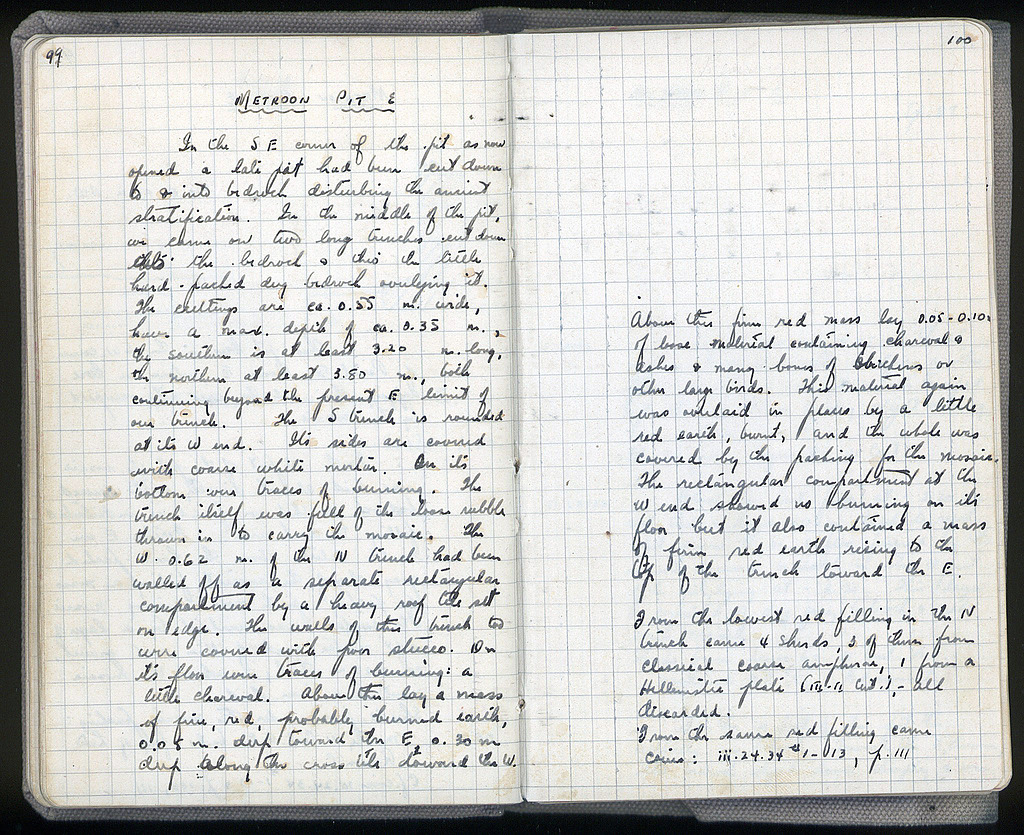 99
METROON PIT E
In the S E corner of the pit as now
opened a late pit had been cut down
to & into bedrock disturbing the ancient
stratification. In the middle of the pit,
we came on two long trenches cut down
into the bedrock & this the little
hard-packed dug bedrock overlying it.
The cuttings are ca. 0.55 m. wide,
have a max. depth of ca. 0.35 m.,
the southern is at least 3.20 m. long,
the northern at least 3.80 m., both
continuing beyond the present E limit of
our trench. The S trench is rounded
at its W end. Its sides are covered
with coarse white mortar. On its
bottom were traces of burning. The
trench itself was full of the loose rubble
thrown in to carry the mosaic. The
W. 0.62 m. of the N trench had been
walled off as a separate rectangular
compartment by a heavy roof tile set
on edge. The walls of this trench too
were covered with poor stucco. On
its floor were traces of burning: a
little charcoal. Above this lay a mass
of fine, red, probably burned earth,
0.05 m. deep toward the E, 0.30 m
deep along the cross tile toward the W.
100
Above this firm red mass lay 0.05-0.10
of loose material containing charcoal &
ashes & many bones of chickens or
other large birds. This material again
was overlaid in places by a little
red earth, burnt, and the whole was
covered by the packing for the mosaic.
The rectangular compartment at the
W end showed no burning on its
floor but it also contained a mass
of firm red earth rising to the
top of the trench toward the E.
From the lowest red filling in the N
trench came 4 sherds, 3 of them from
classical coarse amphorae, 1 from a
Hellenistic plate (III-II cent.), - all
discarded.
From the same red filling came
coins: iii.24.34 #1-13, p.111